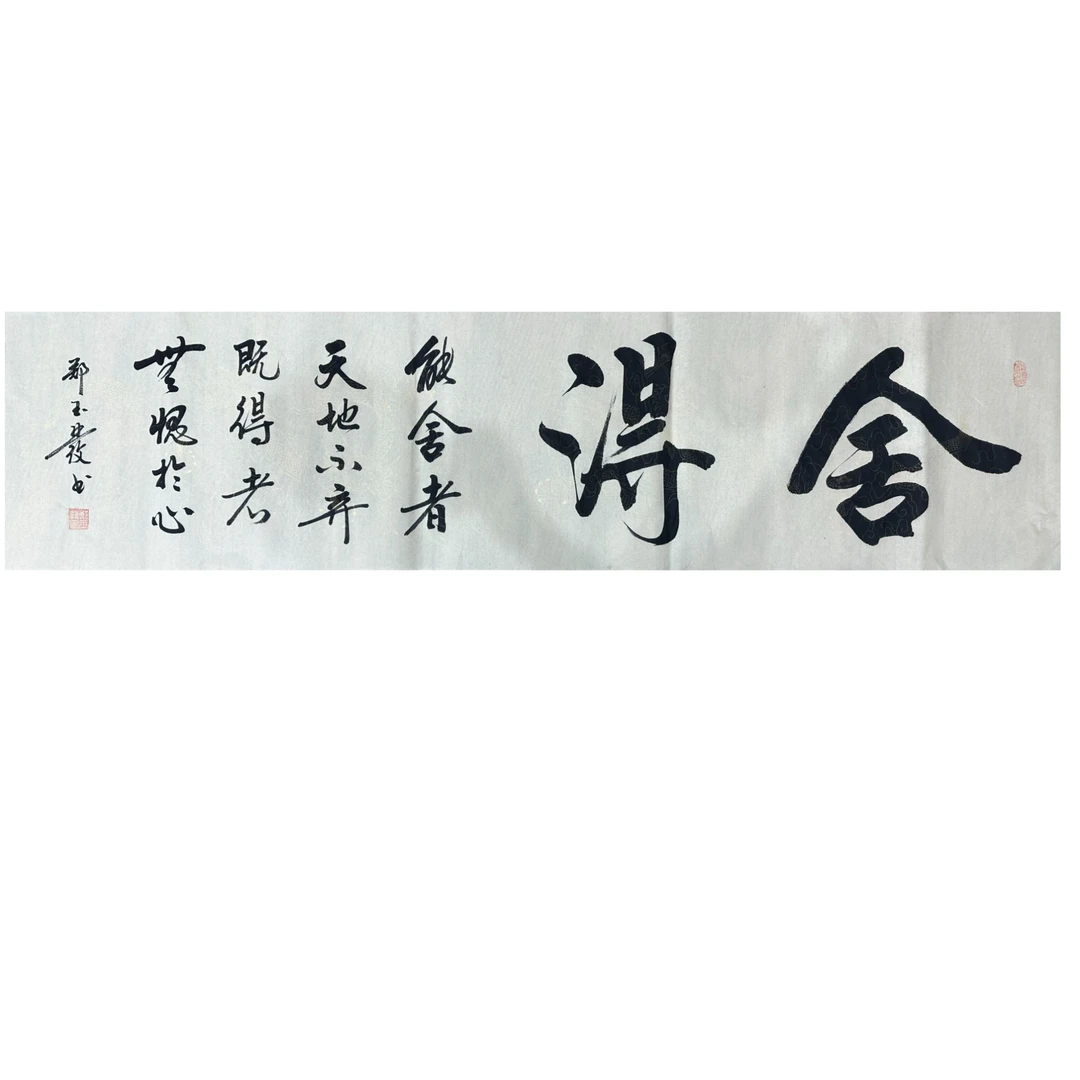 舍
得
能舍者
天地不弃
既得者
無愧於心
郑玉发书